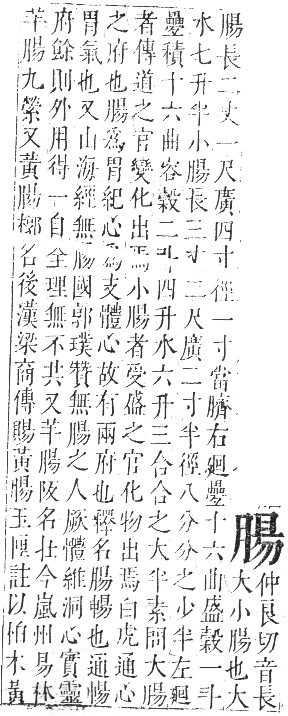 腸
仲良切音長
大小腸也大
腸長二丈一尺廣四寸徑一寸當臍右廻疊十六曲盛穀一斗
水七升半小腸長三丈二尺廣二寸半徑八分分之少半左廻
疊積十六曲容穀二斗四升水六升三合合之大半素問大腸
者傳道之官變化出焉小腸者受盛之官化物出焉白虎通心
之府也腸爲胃紀心爲支體心故有兩府也釋名腸暢也通暢
胃氣也又山海經無腸國郭璞贊無腸之人厥體維洞心實靈
府餘則外用得一自全理無不共又羊腸阪名壯今嵐州易林
羊腸九縈又黃腸槨名後漢梁商傳賜黃腸玉匣註以栢木黃